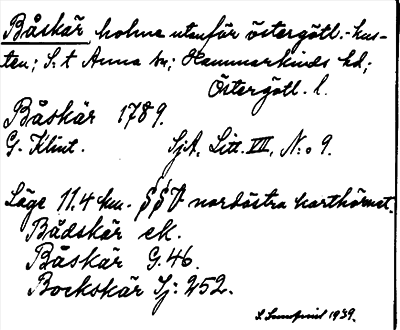 Båskär holme utanför östergötl.-kus-
ten; S:t Anna sn; Hammarkinds hd;
Östergötl. l.
Båskär 1789.
G. Klint. Sjk. Litt. VII, N:o 9.
Läge 11.4 km. SSV nordöstra karthörnet.
Bådskär ek.
Båskär G.46.
Bockskär Sj: 252.
1939.